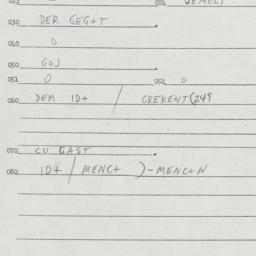 030 DER GEG+T .
040 0
050 GOJ
051 0 052 0
060 DEM ID+ / GBEKENT(249
070 CU GAST .
080 ID+ / MENC+ )-MENC+N